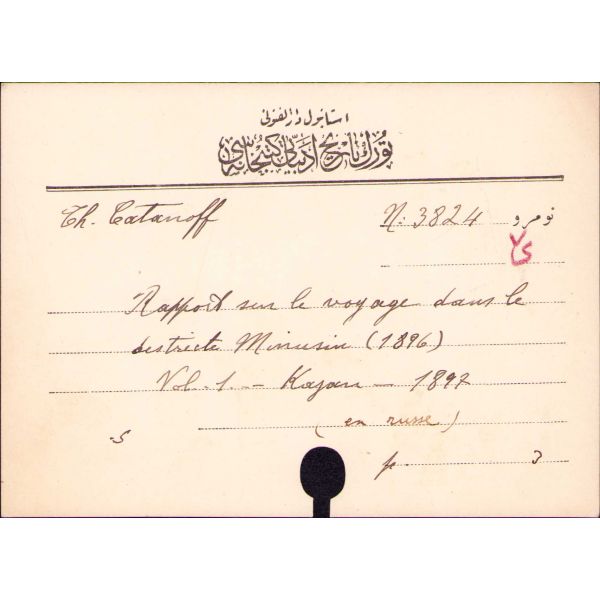 استانبول دار الفنونى
تورك تاريخ ادبياتى كتبخانه سى
Th. Catanoff N: 3824 نومرو
Rapport sur le voyage dans le
districte Minusin (1896)
Vol. 1 — Kazan — 1897
(en russe)